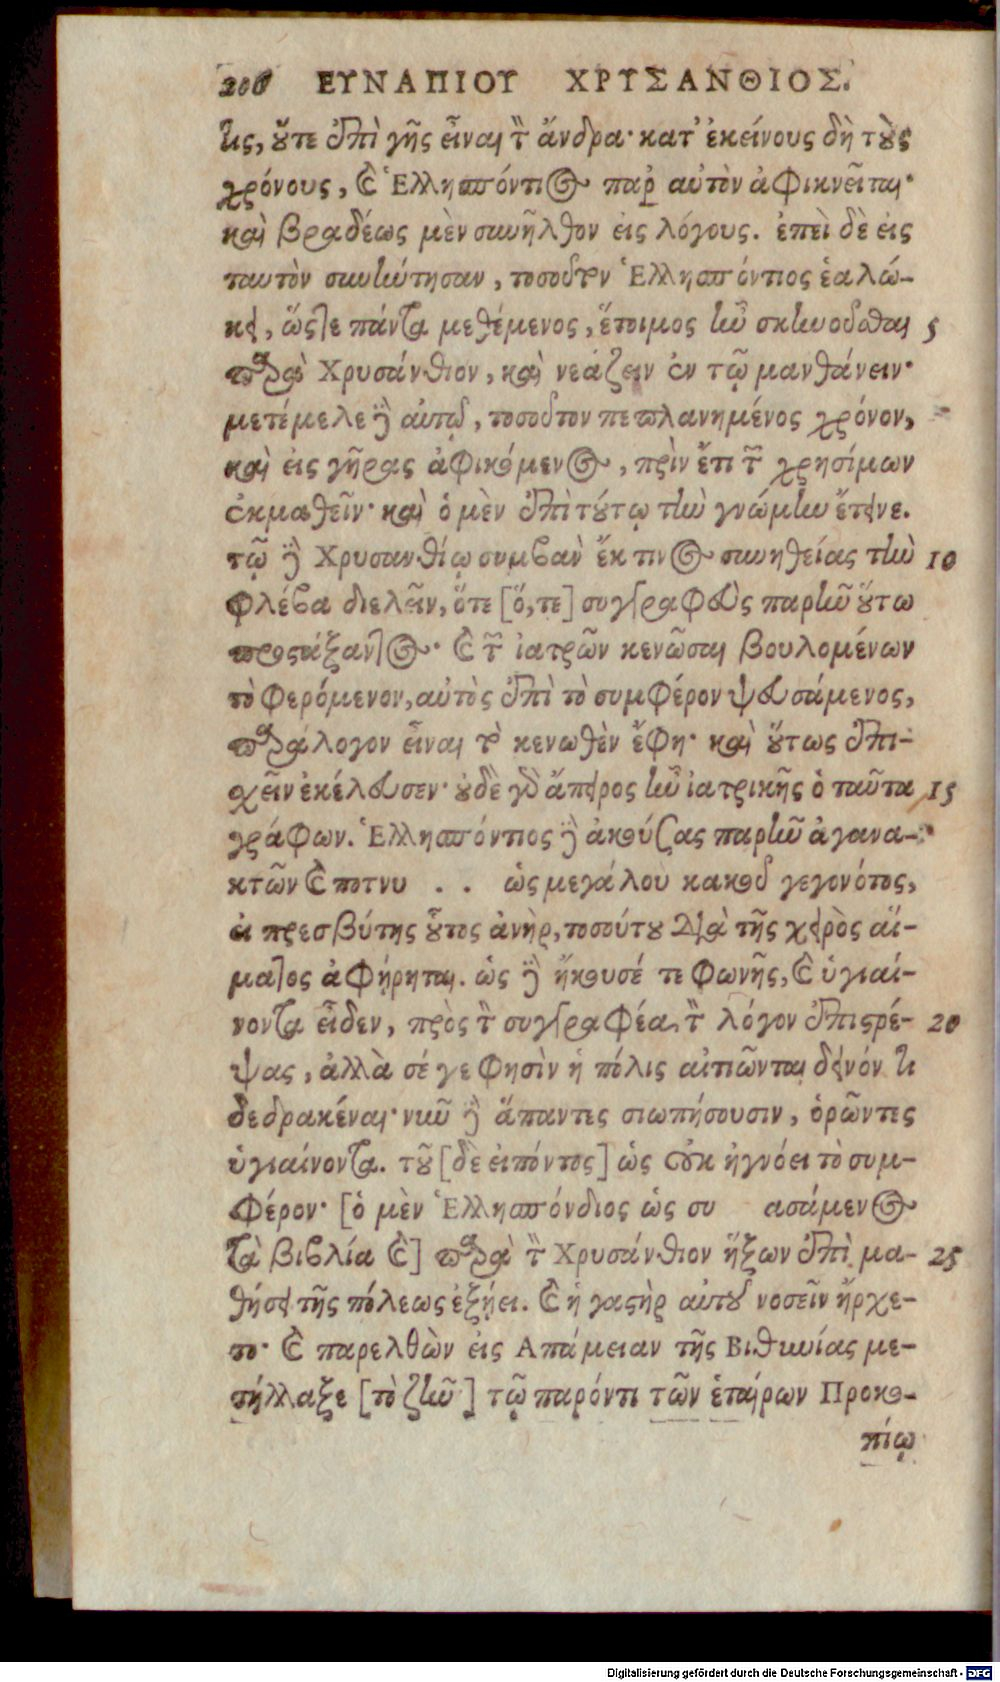 200 ΕΥΝΑΠΙΟΥ ΧΡΥΣΑΝΘΙΟΣ.
τις, οὔτε ἐπὶ γῆς εἶναι τὸν ἄνδρα· κατ' ἐκείνους δὴ τοὺς
χρόνους, καὶ Ἑλλησπόντιος παρ' αὐτὸν ἀφικνεῖται·
καὶ βραδέως μὲν συνῆλθον εἰς λόγους. ἐπεὶ δὲ εἰς
ταυτὸν συνήντησαν, τοσοῦτον Ἑλλησπόντιος ἑαλώ-
κει, ὥστε πάντα μεθέμενος, ἕτοιμος ἦν σκηνοῦσθαι 5
παρὰ Χρυσάνθιον, καὶ νεάζειν ἐν τῷ μανθάνειν·
μετέμελε γὰρ αὐτῷ, τοσοῦτον πεπλανημένος χρόνον,
καὶ εἰς γῆρας ἀφικόμενος, πρὶν ἔτι τῶν χρησίμων
ἐκμαθεῖν· καὶ ὁ μὲν ἐπὶ τούτῳ τὴν γνώμην ἔτεινε.
τῷ δὲ Χρυσανθίῳ συμβὰν ἔκ τινος συνηθείας τὴν 10
φλέβα διελεῖν, ὅτε [ὅ,τε] συγγραφεὺς παρῆν οὕτω
προστάξαντος· καὶ τῶν ἰατρῶν κενῶσαι βουλομένων
τὸ φερόμενον, αὐτὸς ἐπὶ τὸ συμφέρον ψευσάμενος,
παράλογον εἶναι τὸ κενωθὲν ἔφη· καὶ οὕτως ἐπι-
χεῖν ἐκέλευσεν· οὐδὲ γὰρ ἄπειρος ἦν ἰατρικῆς ὁ ταῦτα 15
γράφων. Ἑλλησπόντιος δὲ ἀκούσας παρῆν ἀγανα-
κτῶν καὶ ποτνυ . . ὡς μεγάλου κακοῦ γεγονότος,
εἰ πρεσβύτης οὗτος ἀνὴρ, τοσούτου διὰ τῆς χειρὸς αἵ-
ματος ἀφῄρηται. ὡς δὲ ἤκουσέ τε φωνῆς, καὶ ὑγιαί-
νοντα εἶδεν, πρὸς τὸν συγγραφέα τὸν λόγον ἐπιστρέ- 20
ψας, ἀλλὰ σέ γε φησὶν ἡ πόλις αἰτιῶνται δεινόν τι
δεδρακέναι· νῦν δὲ ἅπαντες σιωπήσουσιν, ὁρῶντες
ὑγιαίνοντα. τοῦ [δὲ εἰπόντος] ὡς οὐκ ἠγνόει τὸ συμ-
φέρον· [ὁ μὲν Ἑλλησπόνδιος ὡς συ ασάμενος
τὰ βιβλία καὶ] παρὰ τὸν Χρυσάνθιον ἥξων ἐπὶ μα-  25
θήσει τῆς πόλεως ἐξῄει. καὶ ἡ γαστὴρ αὐτοῦ νοσεῖν ἤρχε-
το· καὶ παρελθὼν εἰς Απάμειαν τῆς Βιθυνίας με-
τήλλαξε [τὸ ζῆν] τῷ παρόντι τῶν ἑταίρων Προκο-
πίῳ
Digitalisierung gefördert durch die Deutsche Forschungsgemeinschaft - DFG